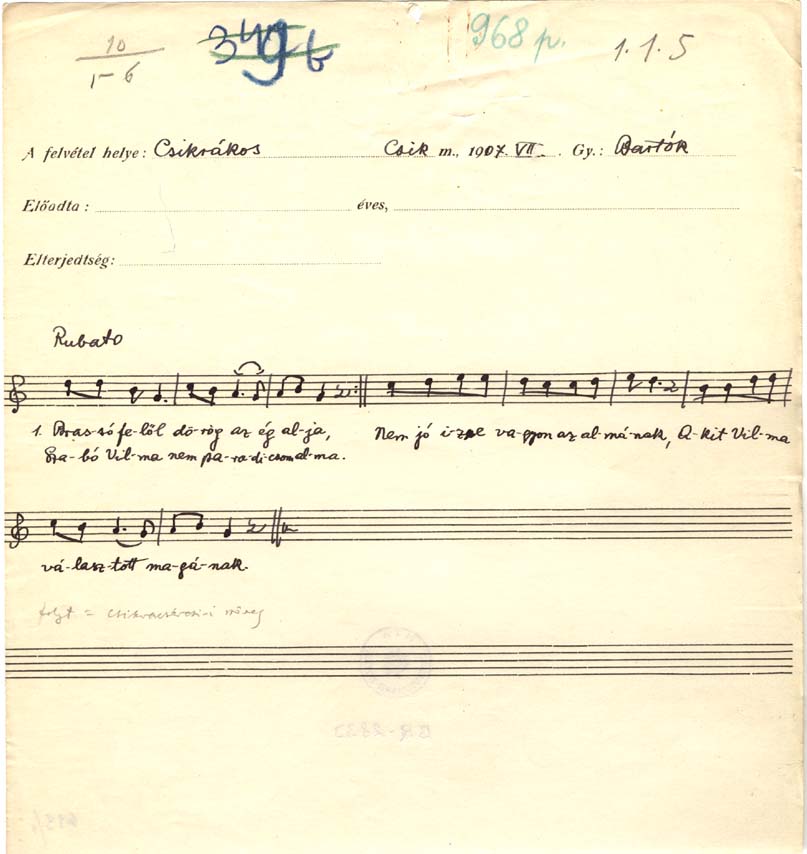 10 349b 968 p. 1.1.5
1-6
A felvétel helye: Csikrákos Csik m., 1907. VII. Gy.: Bartók
Előadta: éves,
Elterjedtség:
Rubato
1. Bras-só fe-lől dö-rög az ég al-ja, Nem jó i-ze va-gyon az al-má-nak, A-kit Vil-ma
Sza-bó Vil-ma nem pa-ra-di-csom al-ma.
vá-lasz-tott ma-gá-nak.
folyt =